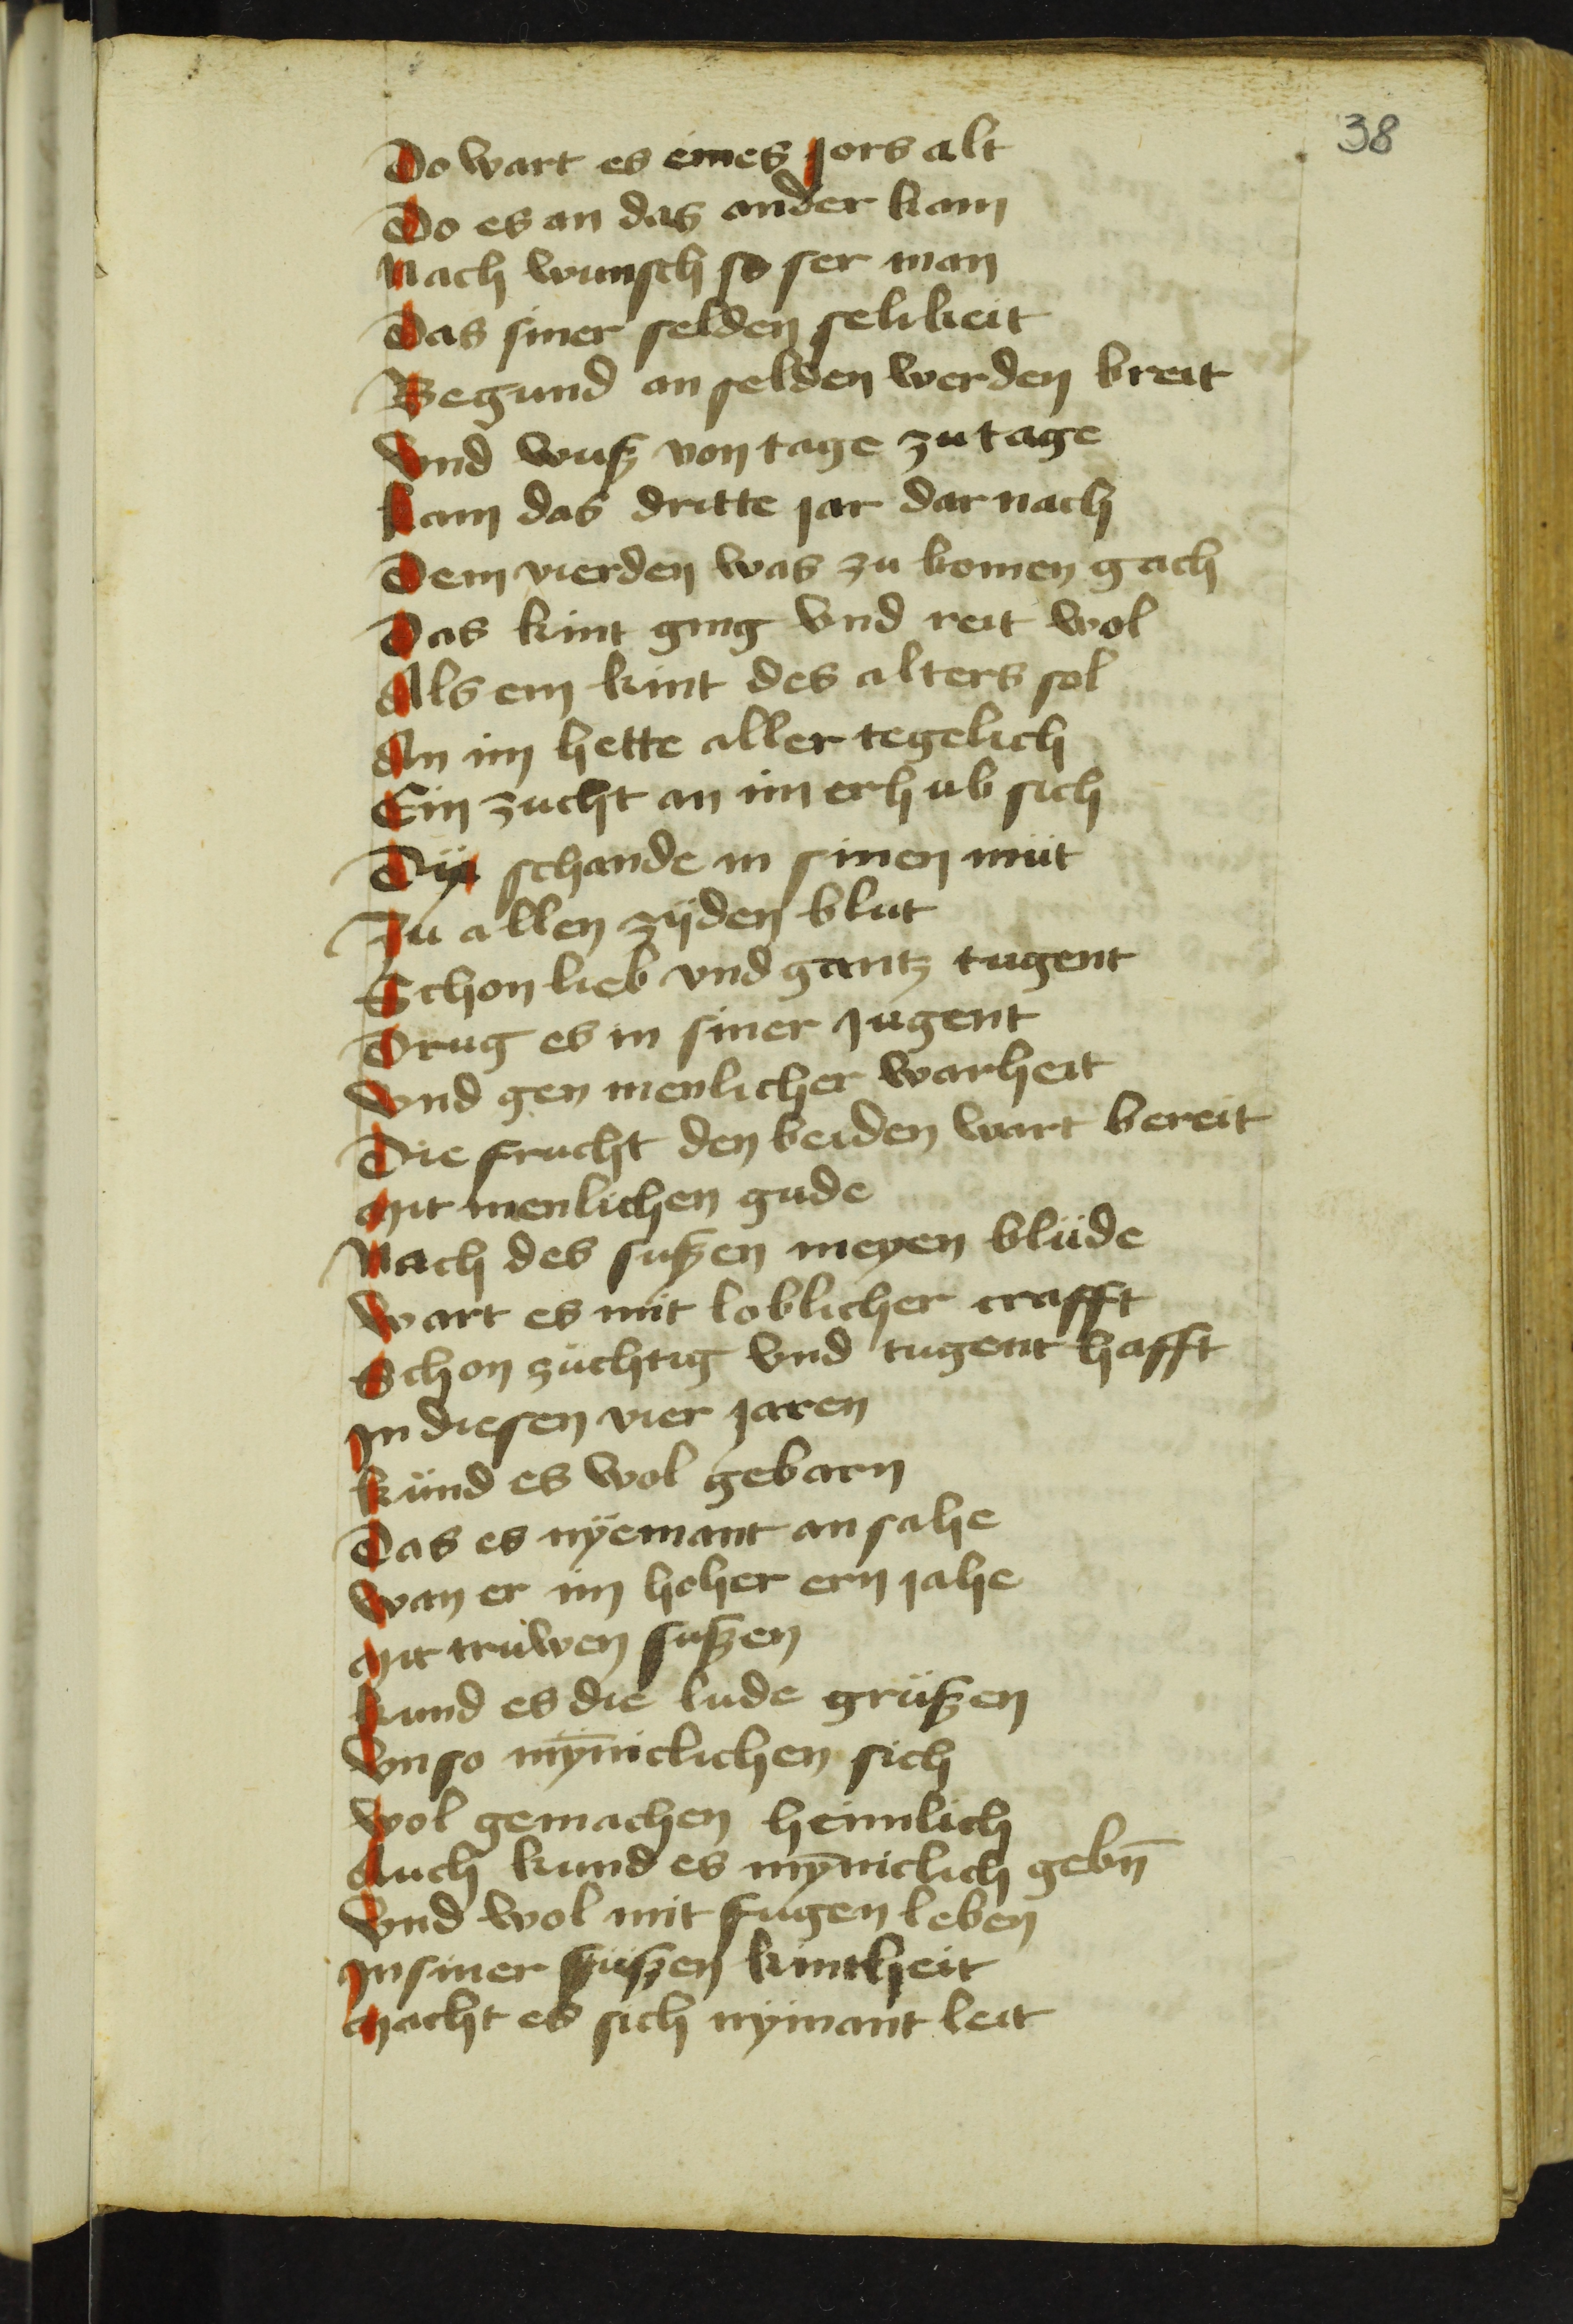 38
Do wart es eines jors alt
Do es an das ander kam
Nach wunsch so ser man
Das siner selden selikeit
Begund an selden werden breit
Vnd wuß von tage zu tage
kam das dritte jar dar nach
Dem vierden was zu komen gach
Das kint ging vnd reit wol
Als ein kint des alters sol
An im hette aller tegelich
Ein zucht an im erhub sich
Dÿ schande in sinen müt
Zu allen zÿden blut
Schon lieb vnd gantz tugent
Drug es in siner jugent
Vnd gen menlicher warheit
Die frucht den beiden wart bereit
Mit menlichen gude
Nach des sußen meyen blüde
Wart es mit loblicher crafft
Schon züchtig vnd tugent hafft
In diesen vier jaren
künd es wol gebarn
Das es nÿemant an sahe
Wan er im hoher ern jahe
Mit trüwen sußen
kund es die lude grüßen
Vn so mÿ̄niclichen sich
Wol gemachen heimlich
Auch kund es mȳniclich gebn̄
Vnd wol mit fugen leben
In siner süßen kintheit
Macht es sich nÿmant leit